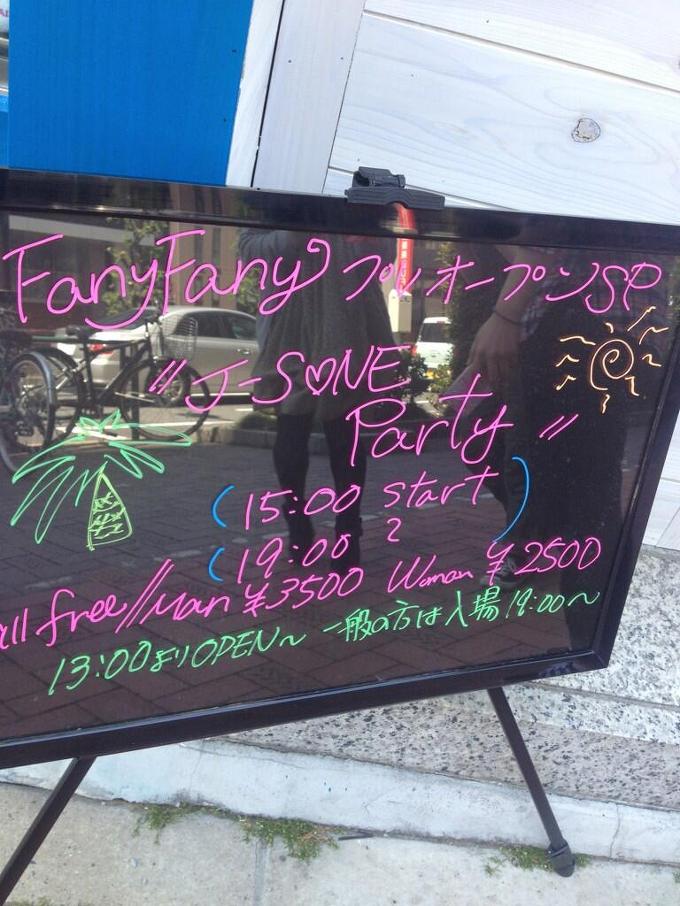 FanyFany プレオープンSP
"J-S♡NE
Party"
(15:00 start)
(19:00 2
all free//Man ¥3500 Woman ¥2500
13:00よりOPEN~ 一般の方は入場19:00~